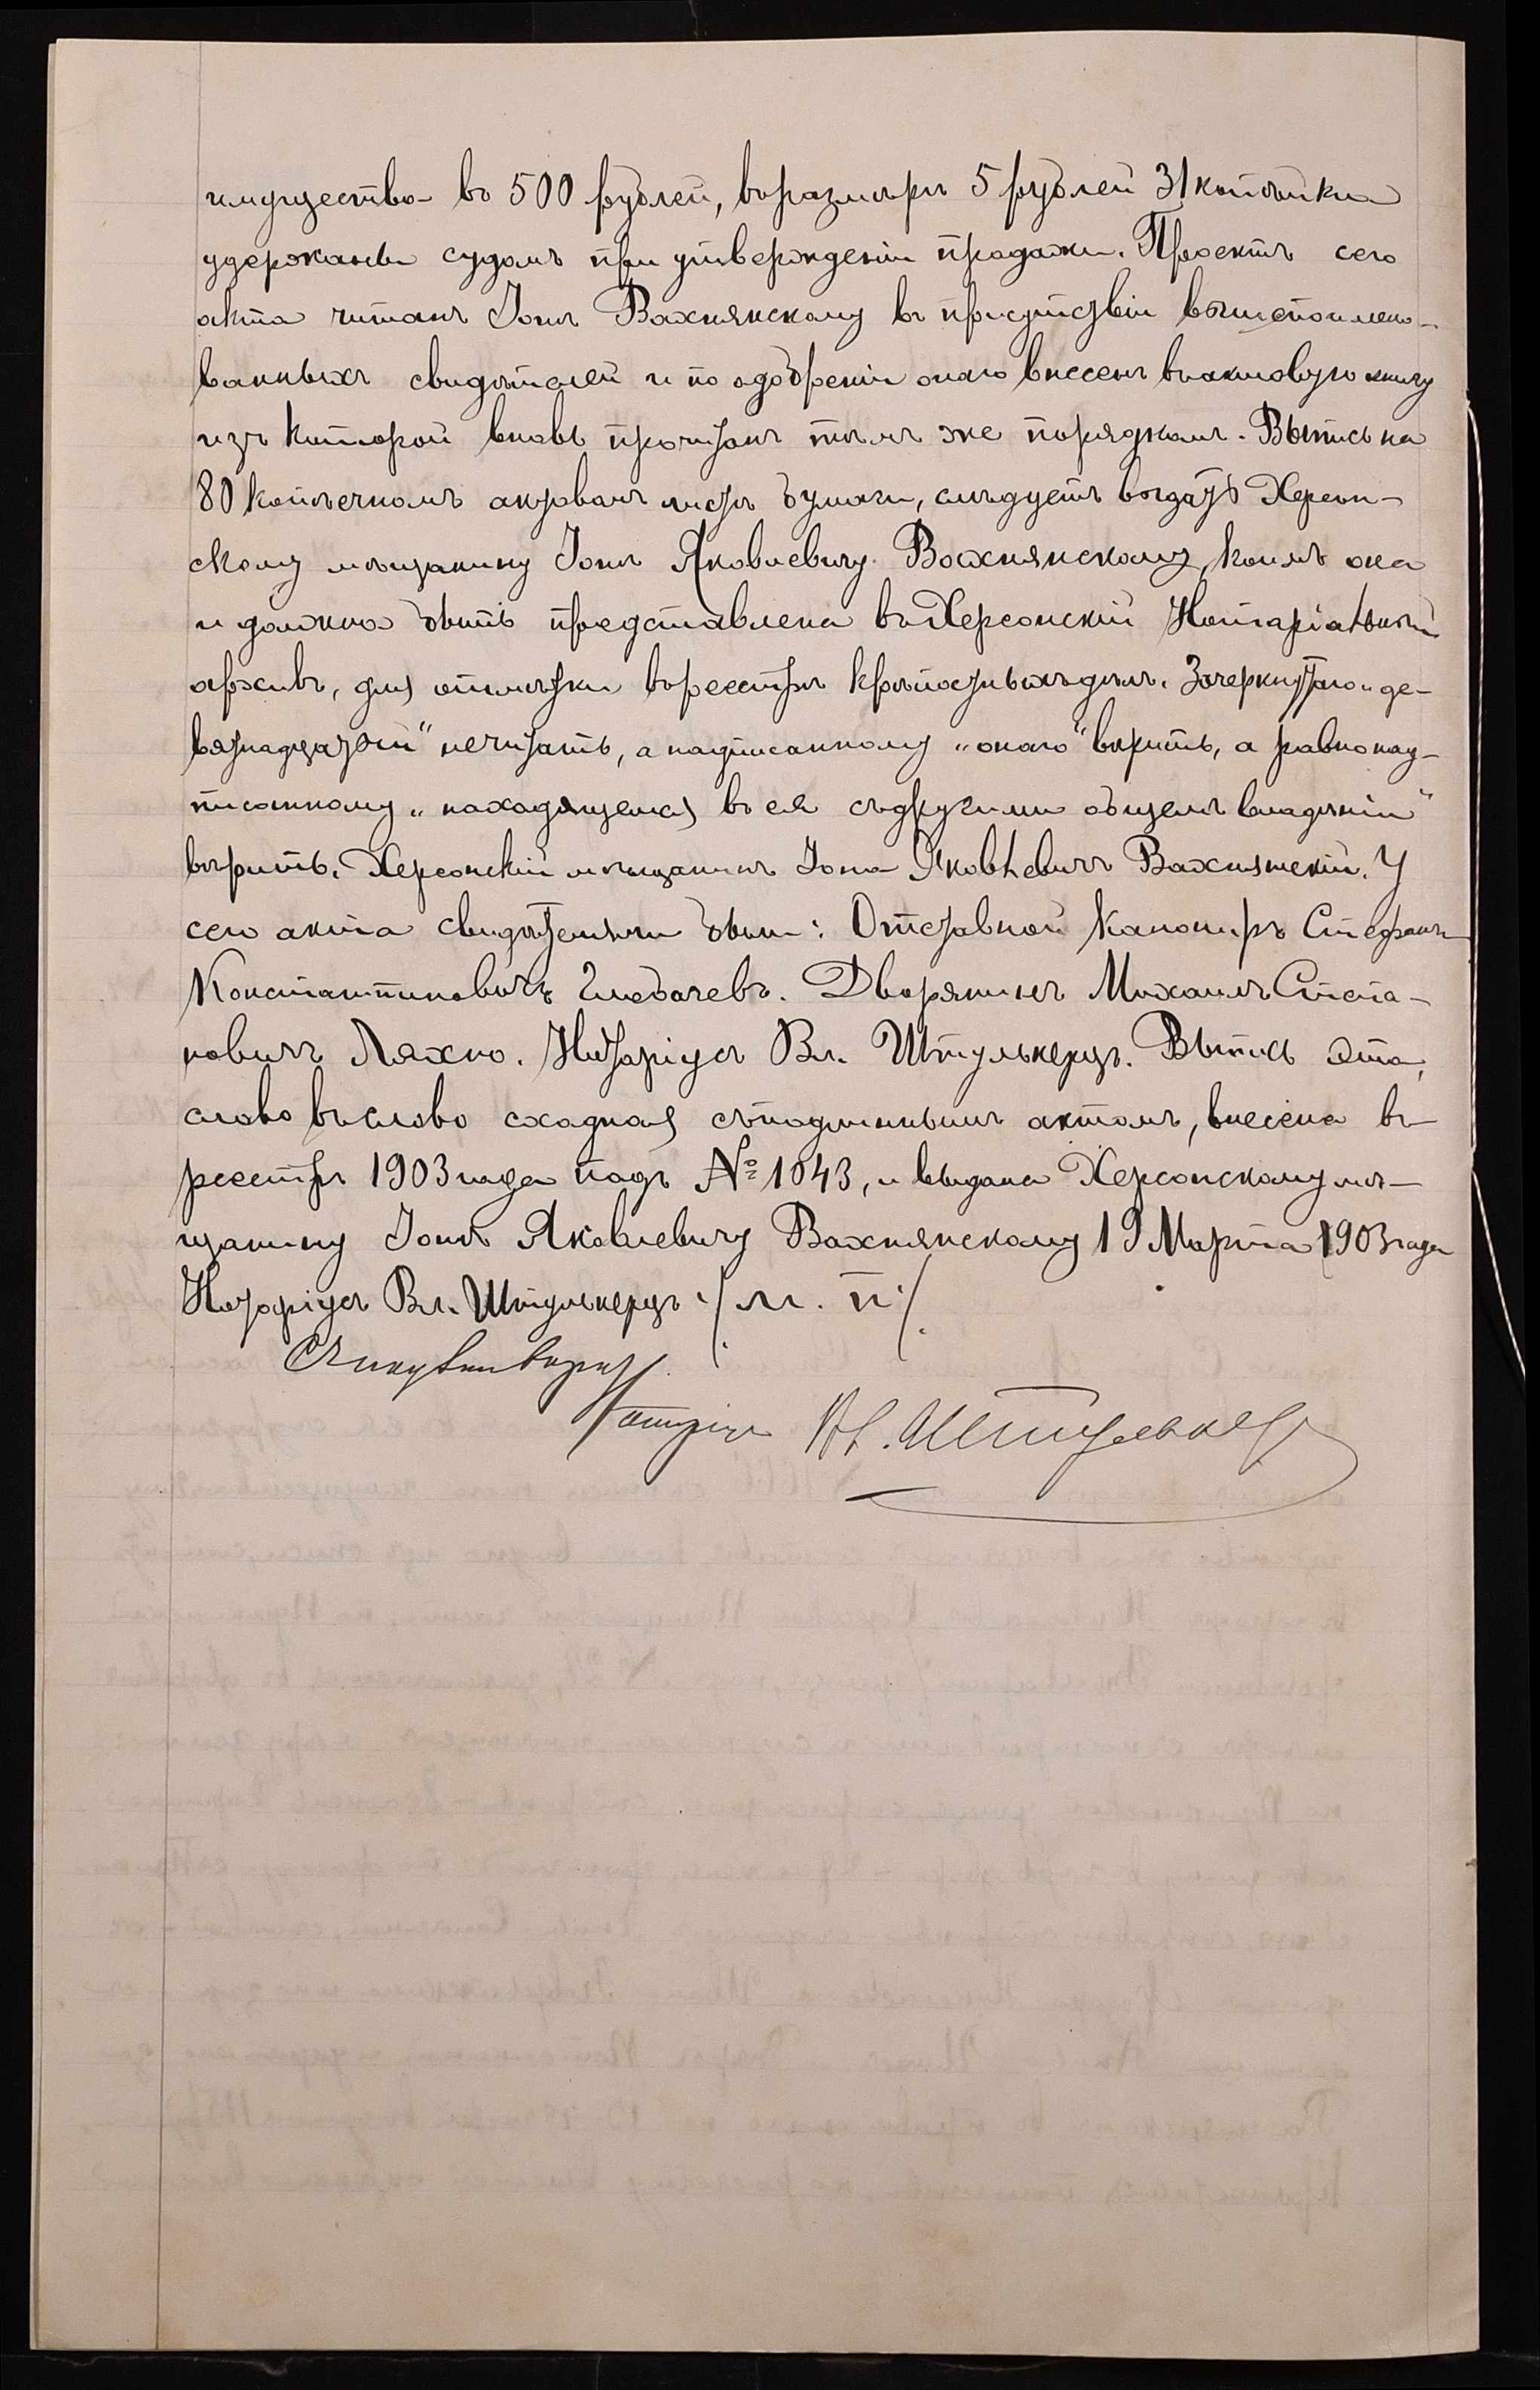 имущество въ 500 рублей, въ размѣрѣ 5 рублей 31 копѣйки
удержаны судомъ при утвержденіи продажи. Проектъ сего
акта читанъ Іонѣ Вахнянскому въ присутствіи вышепоимено-
ванныхъ свидѣтелей и по одобреніи онаго внесенъ въ актовую книгу
изъ которой вновь прочитанъ тѣмъ же порядкомъ. Выпись на
80 копѣечномъ актовомъ листѣ бумаги, слѣдуетъ выдать Херсон-
скому мѣщанину Іонѣ Яковлевичу Вахнянскому, коимъ она
и должна быть представлена въ Херсонскій Нотаріальный
архивъ, для отмѣтки въ реестрѣ крѣпостныхъ дѣлъ. Зачеркнутаго „де-
вятнадцатый“ нечитать, а надписанному „онаго“ вѣрить, а равно над-
писанному „находящемся въ ея съ другими общемъ владѣніи“
вѣрить. Херсонскій мѣщанинъ Іона Яковлевичъ Вахнянскій. У
сего акта свидѣтелями были: Отставной Канониръ Стефанъ
Константиновичъ Глобачевъ. Дворянинъ Михаилъ Степа-
новичъ Ляхно. Нотаріусъ Вл. Штулькерцъ. Выпись эта,
слово въ слово сходная съ подлиннымъ актомъ, внесена въ
реестръ 1903 года подъ № 1043, и выдана Херсонскому мѣ-
щанину Іонѣ Яковлевичу Вахнянскому 19 Марта 1903 года
Нотаріусъ Вл. Штулькерцъ /: М. П. :/
Нотаріусъ Вл. Штулькерцъ